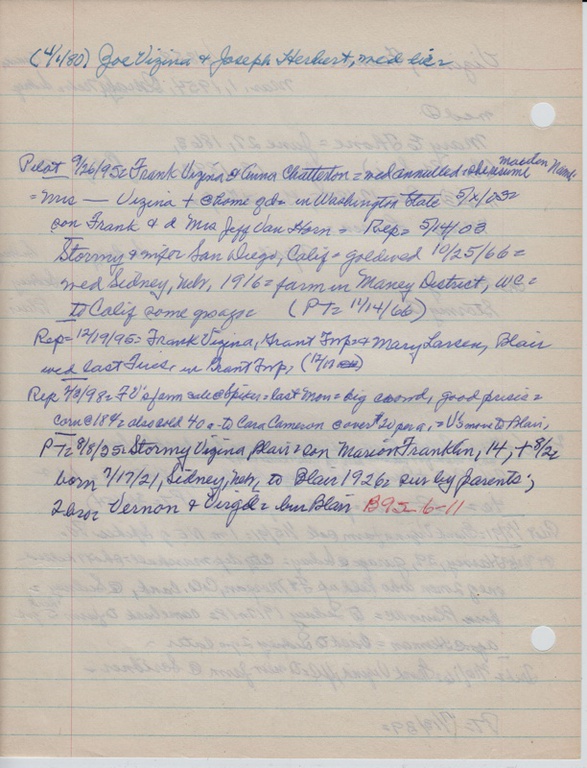 (4/1/80) Zoe Vizina & Joseph Herbert, med lic=
Pilot 9/26/95= Frank Vizina & Anna Chatterton = med annulled - she resume maiden name
=Mrs — Vizina + @ home gdn in Washington State 5/x/03=
son Frank & d Mrs Jeff Van Horn = Rep= 5/14/03
Stormy & wife San Diego, Calif = goldwed 10/25/66=
wed Sidney, Neb, 1916 = farm in Maney District, WC=
To Calif some yrs ago= (PT= 11/14/66)
Rep= 12/19/95= Frank Vizina, Grant Twp & Mary Larsen, Blair
wed last Tues. in Grant Twp, (12/17)
Rep 3/2/98= F V's farm sale @ Spiker = last Mon = big crowd, good prices =
corn @ 18¢ = also sold 40 a. to Cara Cameron @ over $20 per a, = V's move to Blair,
PT= 8/8/35= Stormy Vizina Blair = son Marion Franklin, 14, + 8/2=
born 7/17/21, Sidney, Neb, to Blair 1926 = sur by parents;
2 bros Vernon & Virgil = bur Blair B9I 6-11